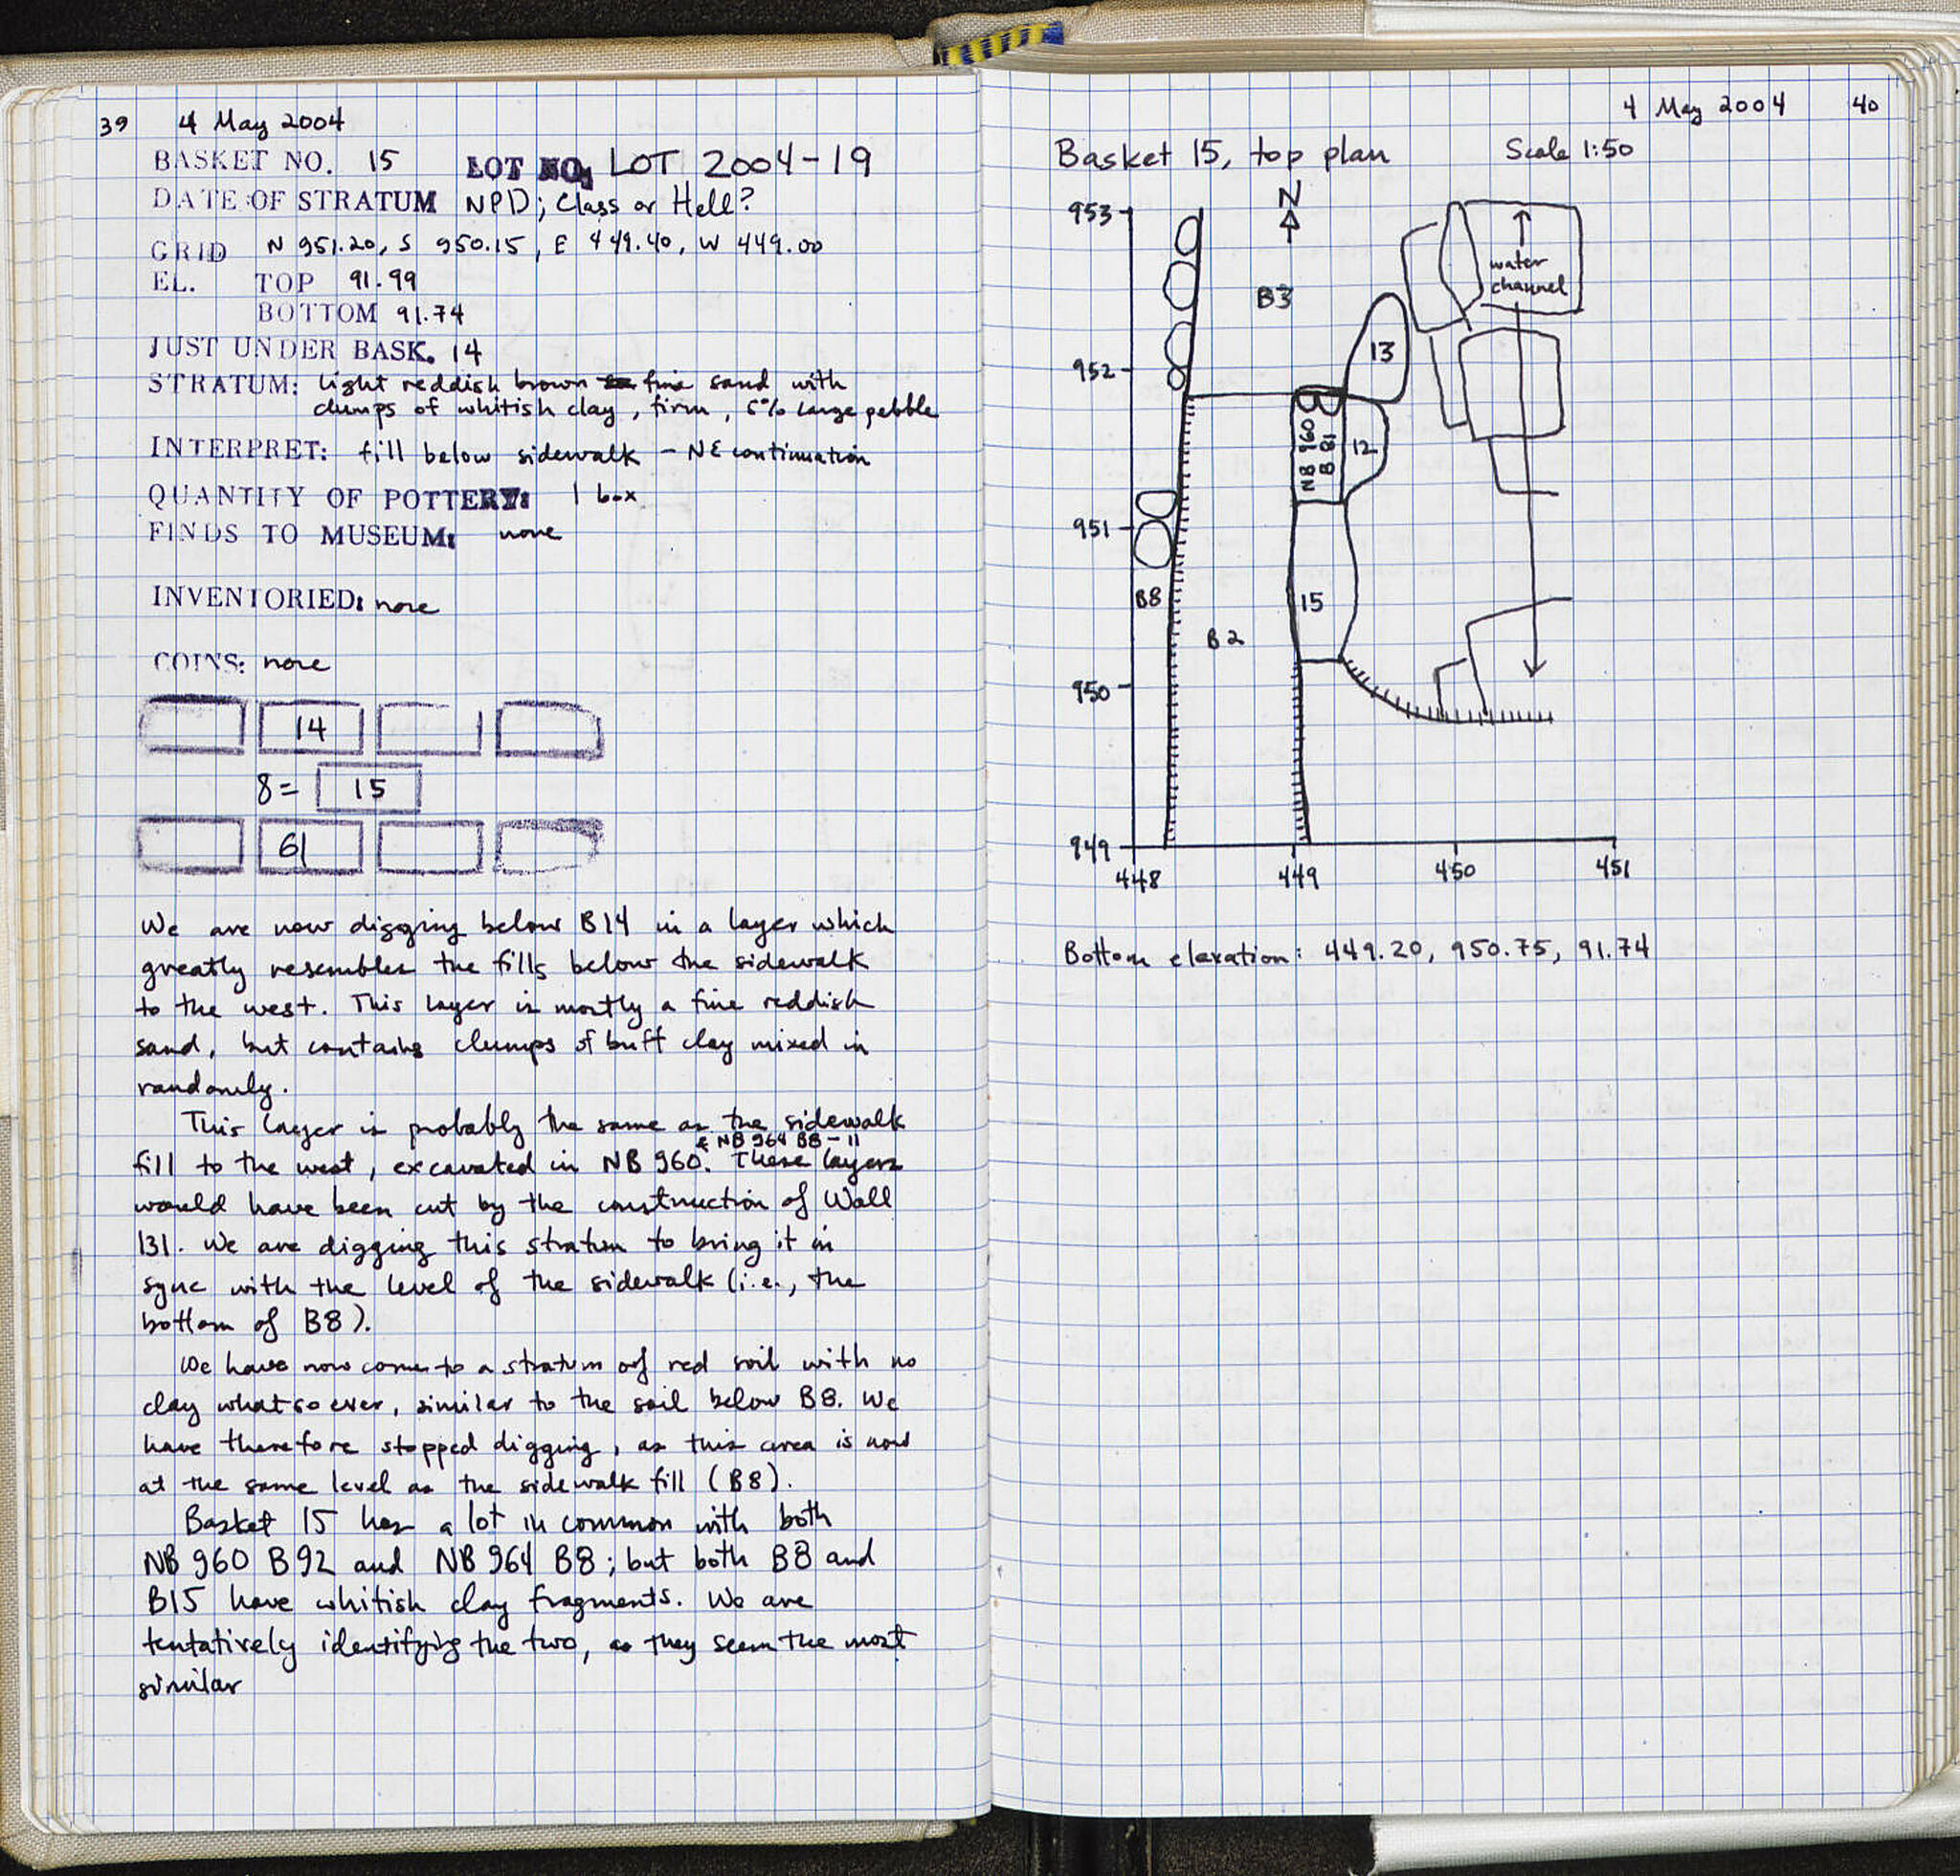 39 4 May 2004
BASKET NO. 15 LOT NO. LOT 2004-19
DATE OF STRATUM NPD; Class or Hell?
GRID N 951.20, S 950.15, E 449.40, W 449.00
EL. TOP 91.99
BOTTOM 91.74
JUST UNDER BASK. 14
STRATUM: light reddish brown fine sand with
clumps of whitish clay, firm, 5% large pebble
INTERPRET: fill below sidewalk - NE continuation
QUANTITY OF POTTERY: 1 box
FINDS TO MUSEUM: none
INVENTORIED: none
COINS: none
14
8= 15
61
We are now digging below B14 in a layer which
greatly resembles the fills below the sidewalk
to the west. This layer is mostly a fine reddish
sand, but contains clumps of buff clay mixed in
randomly.
This layer is probably the same as the sidewalk
& NB 964 B8-11
fill to the west, excavated in NB 960. These layers
would have been cut by the construction of Wall
131. We are digging this stratum to bring it in
sync with the level of the sidewalk (i.e., the
bottom of B8).
We have now come to a stratum of red soil with no
clay what so ever, similar to the soil below B8. We
have therefore stopped digging, as this area is now
at the same level as the sidewalk fill (B8).
Basket 15 has a lot in common with both
NB 960 B92 and NB 964 B8; but both B8 and
B15 have whitish clay fragments. We are
tentatively identifying the two, as they seem the most
similar
4 May 2004 40
Basket 15, top plan Scale 1:50
N
953
water
channel
B3
13
952
NB 960
B 81
12
951
B8
15
B2
950
949
448 449 450 451
Bottom elevation: 449.20, 950.75, 91.74